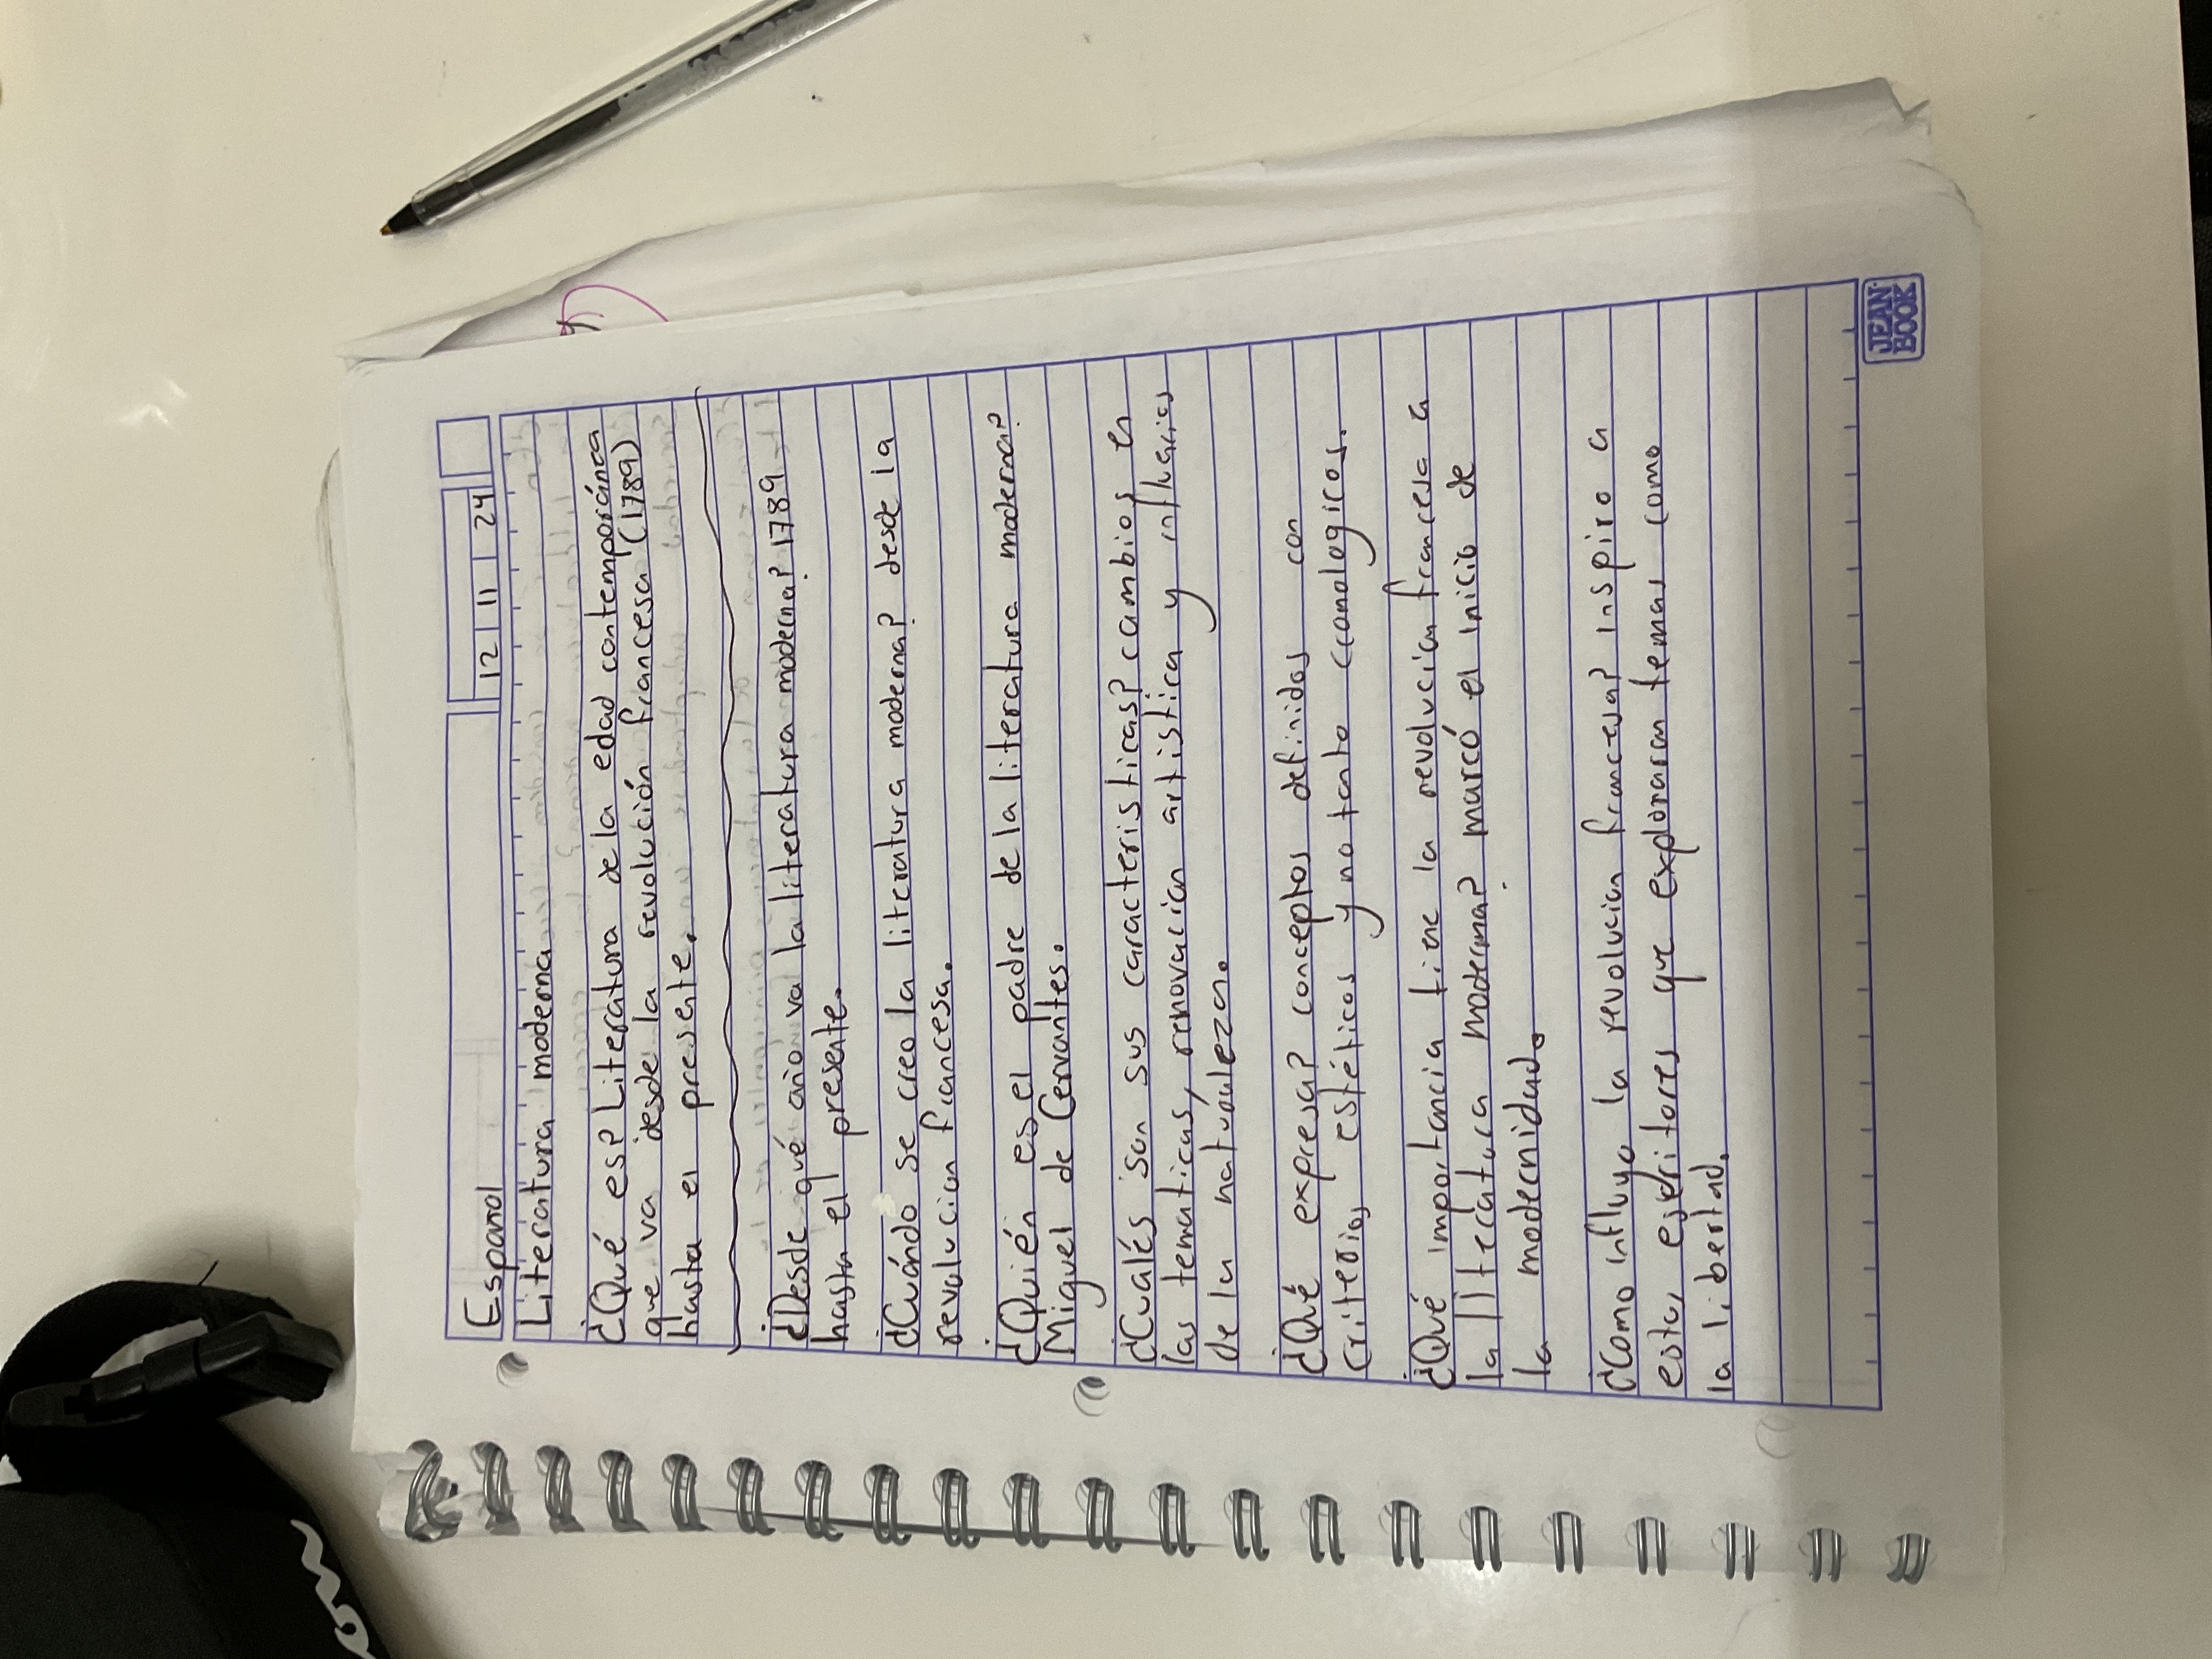 Español
12 11 24
Literatura moderna
¿Qué es? Literatura de la edad contemporánica
que va desde la revolución francesa (1789)
hasta el presente.
¿Desde qué año va la literatura moderna? 1789
hasta el presente.
¿Cuándo se creo la literatura moderna? desde la
revolucion francesa.
¿Quién es el padre de la literatura moderna?
Miguel de Cervantes.
¿Cuáles son sus caracteristicas? cambios en
las tematicas, renovacion artistica y influacios
de la naturaleza.
¿Qué expresa? conceptos definidos con
criterios estéticos y no tanto cronologicos.
¿Qué importancia tiene la revolucion francesa a
la literatura moderna? marcó el inicio de
la modernidad.
¿Como influyo la revolucion francesa? inspiro a
estos esjritores que exploraran temas como
la libertad.
JEAN
BOOK